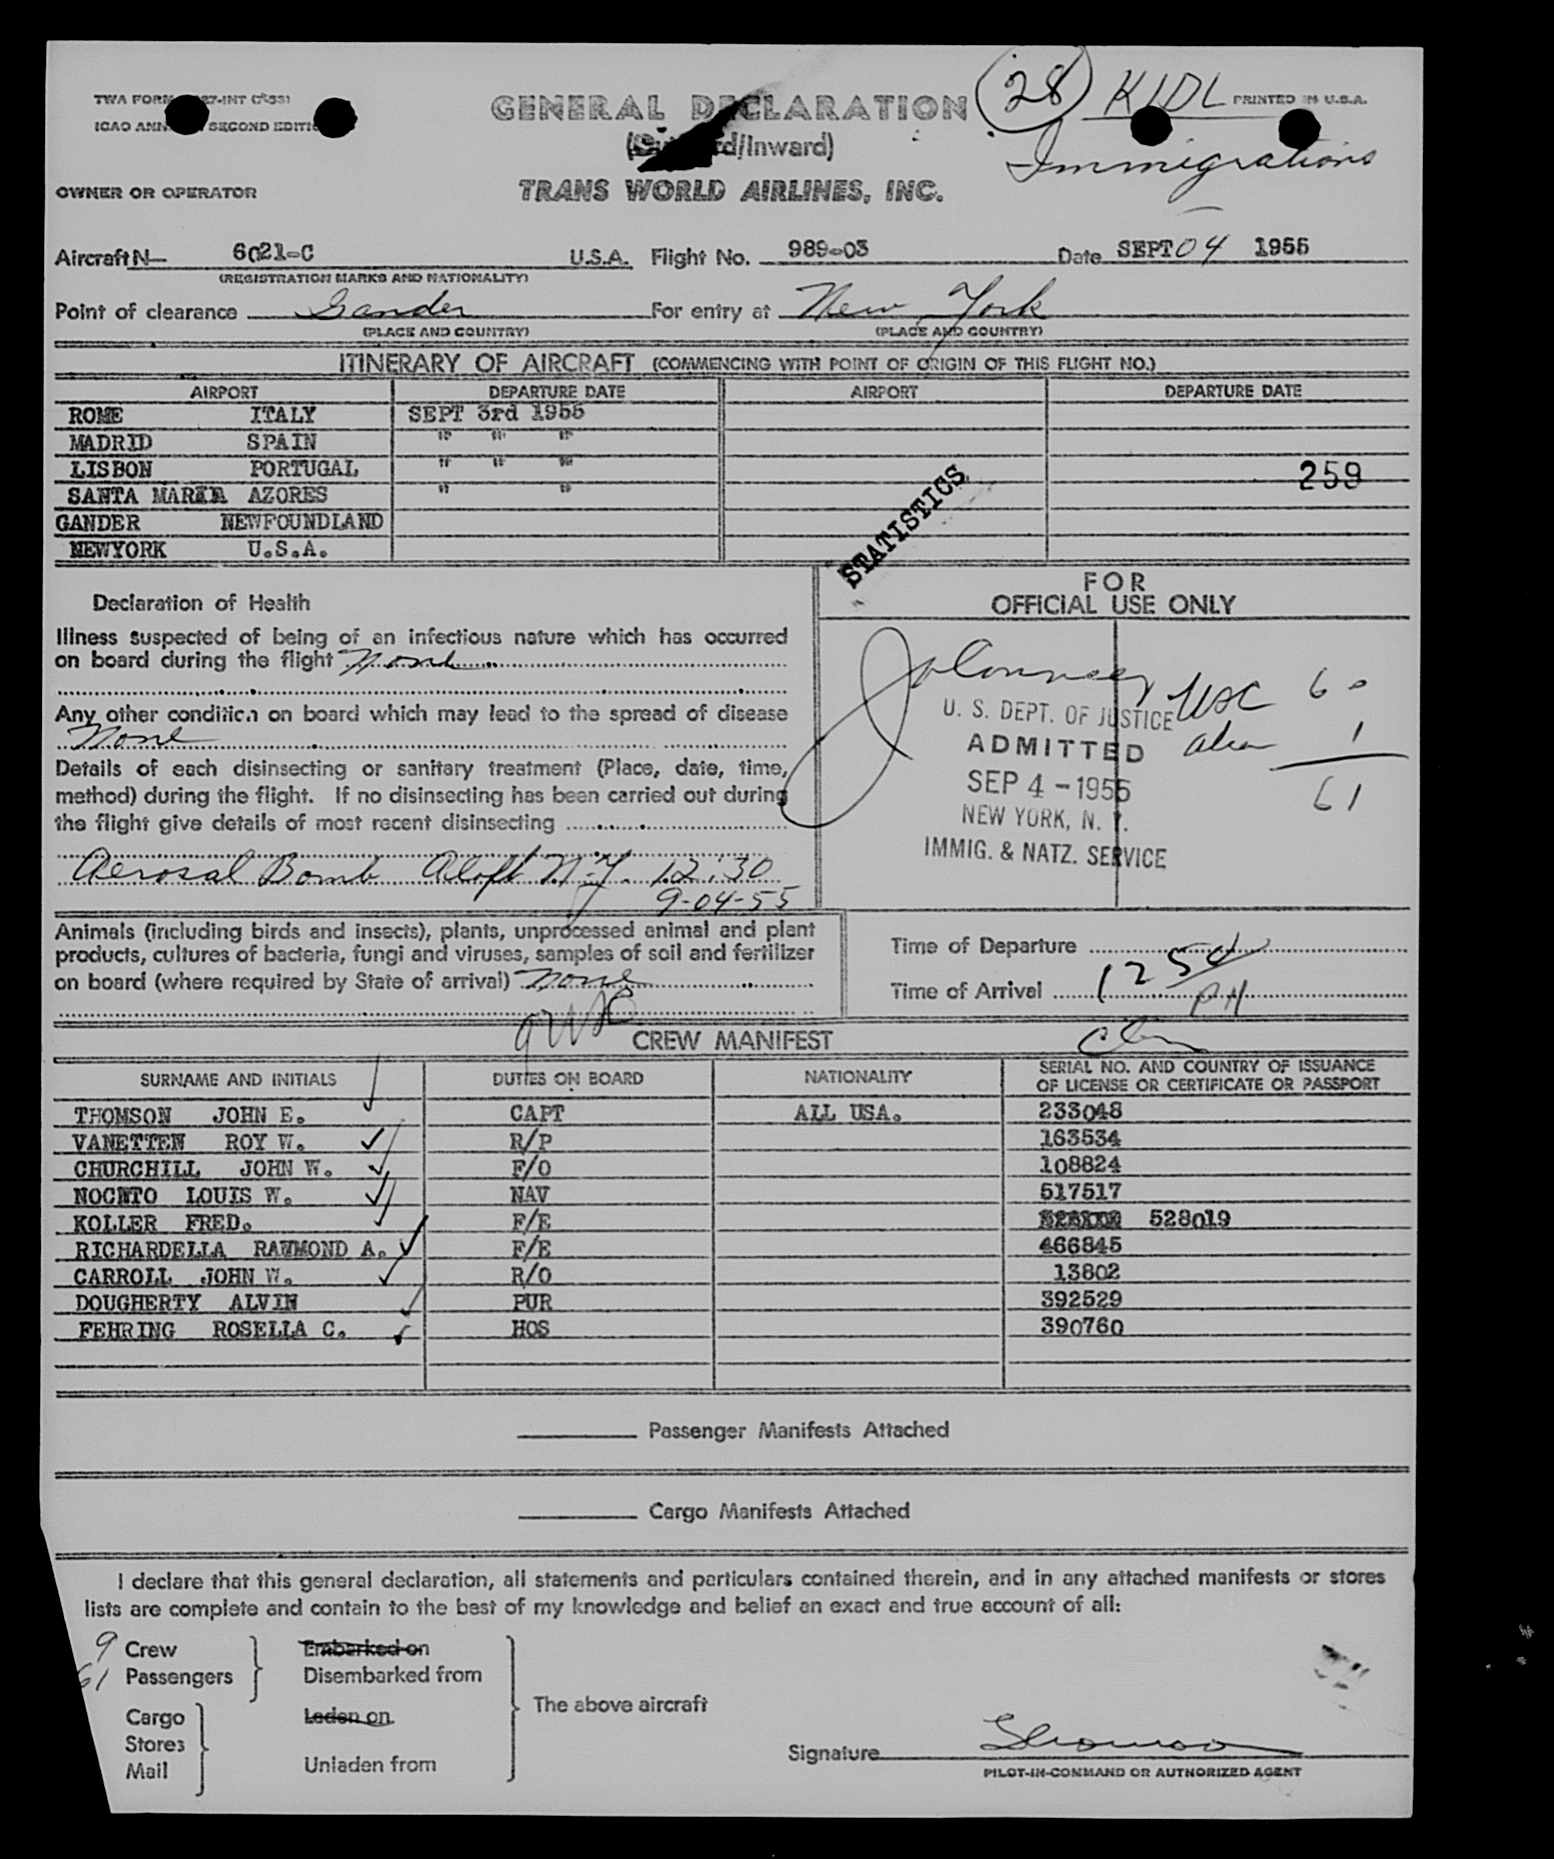 TWA FORM 27-INT
GENERAL DECLARATION
28 KIDL PRINTED IN U.S.A.
ICAO SECOND
/Inward)
Immigrations
OWNER OR OPERATOR
TRANS WORLD AIRLINES, INC.
Aircraft N- 6021-C U.S.A. Flight No. 989-03 Date SEPT 04 1955
(REGISTRATION MARKS AND NATIONALITY)
Point of clearance Gander For entry at New York
(PLACE AND COUNTRY) (PLACE AND COUNTRY)
ITINERARY OF AIRCRAFT (COMMENCING WITH POINT OF ORIGIN OF THIS FLIGHT NO.)
AIRPORT DEPARTURE DATE AIRPORT DEPARTURE DATE
ROME ITALY SEPT 3rd 1955
MADRID SPAIN " " "
LISBON PORTUGAL " " "
259
SANTA MARIA AZORES " "
GANDER NEWFOUNDLAND
NEWYORK U.S.A.
STATISTICS
FOR
OFFICIAL USE ONLY
Declaration of Health
Illness suspected of being of an infectious nature which has occurred
on board during the flight None
Any other condition on board which may lead to the spread of disease
None
Details of each disinsecting or sanitary treatment (Place, date, time,
method) during the flight. If no disinsecting has been carried out during
the flight give details of most recent disinsecting
Aerosal Bomb Aloft N.Y. 12:30
9-04-55
USC 60
U. S. DEPT. OF JUSTICE
alien 1
ADMITTED
61
SEP 4 - 1955
NEW YORK, N. Y.
IMMIG. & NATZ. SERVICE
Animals (including birds and insects), plants, unprocessed animal and plant
products, cultures of bacteria, fungi and viruses, samples of soil and fertilizer
on board (where required by State of arrival) None
Time of Departure
Time of Arrival 12 54 PM
9 USC
CREW MANIFEST
SURNAME AND INITIALS DUTIES ON BOARD NATIONALITY SERIAL NO. AND COUNTRY OF ISSUANCE
OF LICENSE OR CERTIFICATE OR PASSPORT
THOMSON JOHN E. CAPT ALL USA. 233048
VANETTEN ROY W. R/P 163534
CHURCHILL JOHN W. F/O 108824
NOCNTO LOUIS W. NAV 517517
KOLLER FRED. F/E 528019
RICHARDELLA RAYMOND A. F/E 466845
CARROLL JOHN W. R/O 13802
DOUGHERTY ALVIN PUR 392529
FEHRING ROSELLA C. HOS 390760
Passenger Manifests Attached
Cargo Manifests Attached
I declare that this general declaration, all statements and particulars contained therein, and in any attached manifests or stores
lists are complete and contain to the best of my knowledge and belief an exact and true account of all:
9 Crew Embarked on
61 Passengers Disembarked from
The above aircraft
Cargo Laden on
Stores
Mail Unladen from
Signature Thomson
PILOT-IN-COMMAND OR AUTHORIZED AGENT